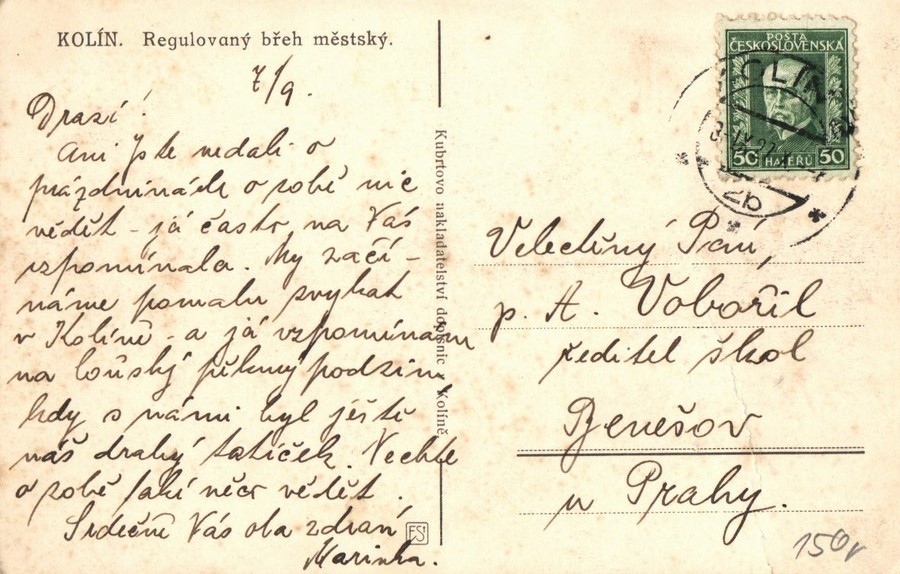 KOLÍN. Regulovaný břeh městský.
7/9.
Drazí!
Ani jste nedali o
prázdninách o sobě nic
vědět - já často na Vás
vzpomínala. My začí-
náme pomalu zvykat
v Kolíně - a já vzpomínám
na loňský pěkný podzim,
kdy s námi byl ještě
náš drahý tatíček. Nechte
o sobě také něco vědět.
Srdečně Vás oba zdraví
Marinka.
Kubrtovo nakladatelství dopisnic v Kolíně.
POŠTA
ČESKOSLOVENSKÁ
50 HALÉŘŮ 50
2b
Velectěný Pan,
p. A. Vobořil
ředitel škol
Benešov
u Prahy.
150,-